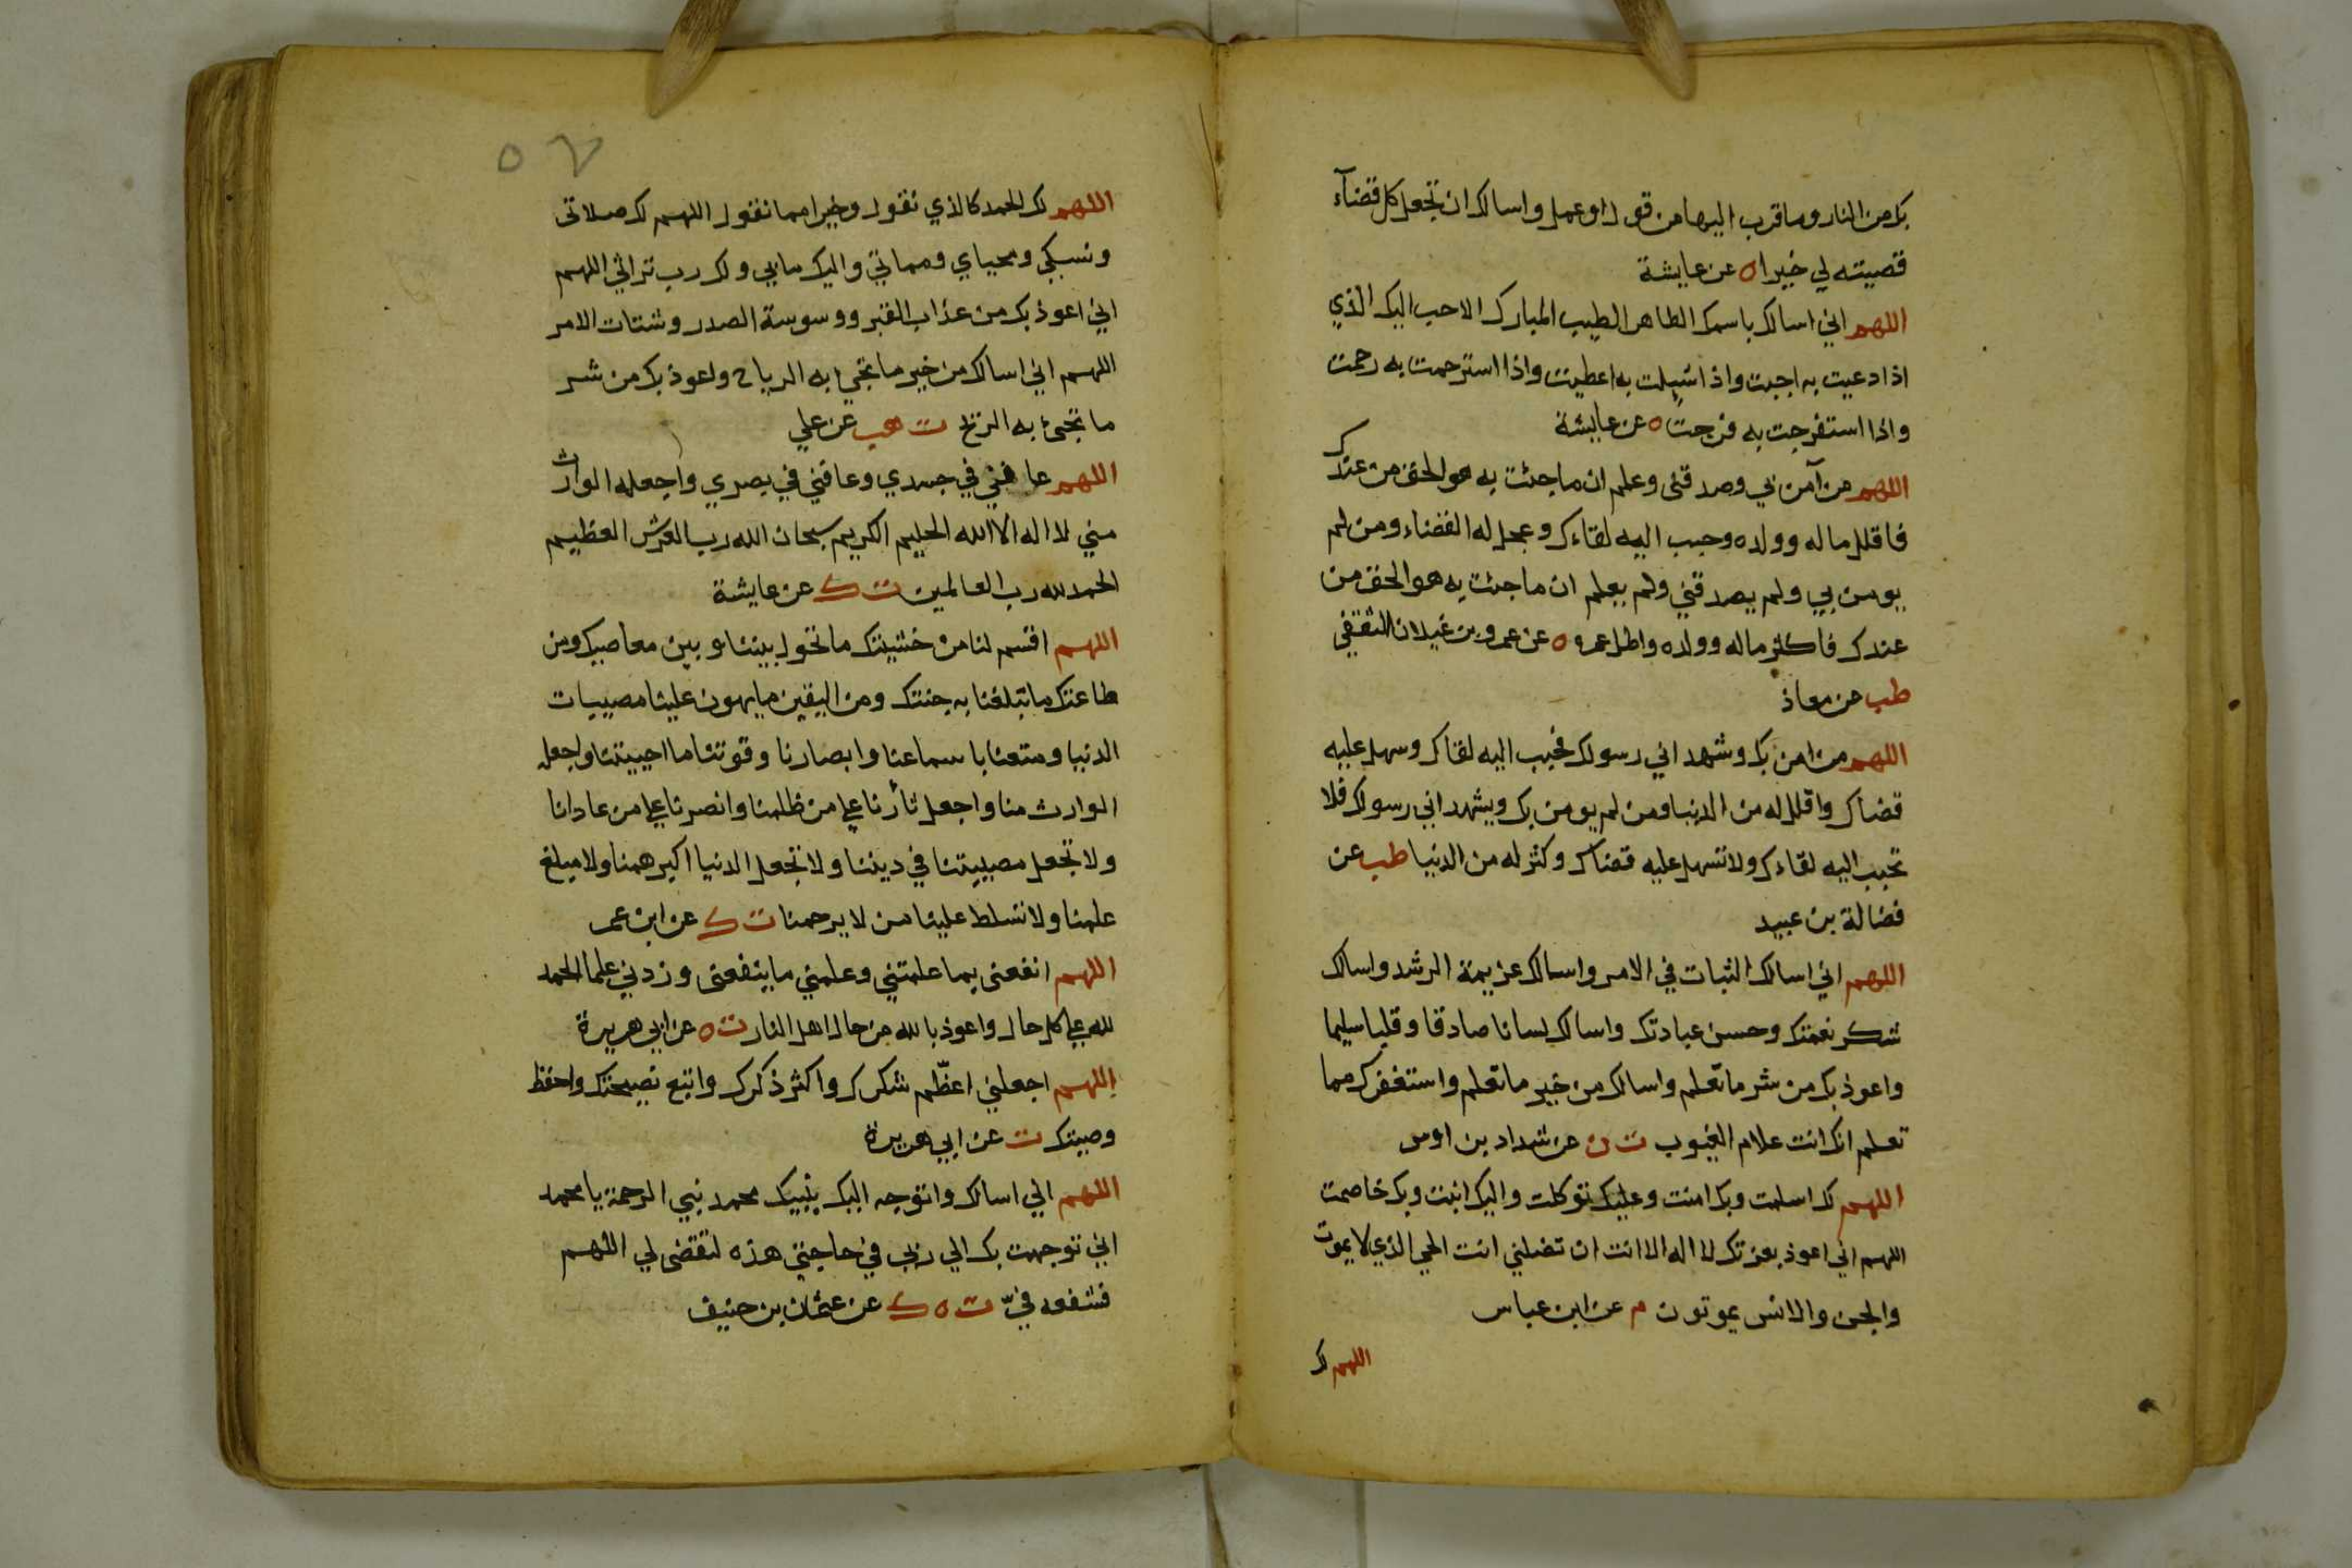 بك من النار وما قرب اليها من قول او عمل واسالك ان تجعل كل قضآء
قضيته لي خيرا ه عن عايشة
اللهم اني اسالك باسمك الطاهر الطيب المبارك الاحب اليك الذي
اذا دعيت به اجبت واذا سيلت به اعطيت واذا استرحمت به رحمت
واذا استفرجت به فرجت ه عن عايشة
اللهم من آمن بي وصدقني وعلم ان ما جئت به هو الحق من عندك
فاقلل ماله وولده وحبب اليه لقاءك وعجل له القضاء ومن لم
يومن بي ولم يصدقني ولم يعلم ان ما جئت به هو الحق من
عندك فاكثر ماله وولده واطل عمره ه عن عمرو بن غيلان الثقفي
طب عن معاذ
اللهم من امن بك وشهد اني رسولك فحبب اليه لقاك وسهل عليه
قضاك واقلل له من الدنيا ومن لم يومن بك ويشهد اني رسولك فلا
تحبب اليه لقاءك ولا تسهل عليه قضاك وكثر له من الدنيا طب عن
فضالة بن عبيد
اللهم اني اسالك الثبات في الامر واسالك عزيمة الرشد واسالك
شكر نعمتك وحسن عبادتك واسالك لسانا صادقا وقلبا سليما
واعوذ بك من شر ما تعلم واسالك من خير ما تعلم واستغفرك مما
تعلم انك انت علام الغيوب ت ن عن شداد بن اوس
اللهم لك اسلمت وبك امنت وعليك توكلت واليك انبت وبك خاصمت
اللهم اني اعوذ بعزتك لا اله الا انت ان تضلني انت الحي الذي لا يموت
والجن والانس يموتون م عن ابن عباس
اللهم لك
٥٧
اللهم لك الحمد كالذي نقول وخيرا مما نقول اللهم لك صلاتى
ونسكي ومحياي ومماتي واليك مابي ولك رب تراثي اللهم
اني اعوذ بك من عذاب القبر ووسوسة الصدر وشتات الامر
اللهم اني اسالك من خير ما تجئ به الرياح واعوذ بك من شر
ما تجئ به الريح ت هب عن علي
اللهم عافني في جسدي وعافني في بصري واجعله الوارث
مني لا اله الا الله الحليم الكريم سبحان الله رب العرش العظيم
الحمد لله رب العالمين ت ك عن عايشة
اللهم اقسم لنا من خشيتك ما تحول بيننا وبين معاصيك ومن
طاعتك ما تبلغنا به جنتك ومن اليقين ما يهون علينا مصيبات
الدنيا ومتعنا باسماعنا وابصارنا وقوتنا ما احييتنا واجعله
الوارث منا واجعل ثأرنا على من ظلمنا وانصرنا على من عادانا
ولا تجعل مصيبتنا في ديننا ولا تجعل الدنيا اكبر همنا ولا مبلغ
علمنا ولا تسلط علينا من لا يرحمنا ت ك عن ابن عمر
اللهم انفعنى بما علمتني وعلمني ما ينفعنى وزدني علما الحمد
لله على كل حال واعوذ بالله من حال اهل النار ت ه عن ابي هريرة
اللهم اجعلني اعظّم شكرك واكثر ذكرك واتبع نصيحتك واحفظ
وصيتك ت عن ابي هريرة
اللهم اني اسالك واتوجه اليك بنبيك محمد نبي الرحمة يا محمد
اني توجهت بك الي ربي في حاجتي هذه لتقضى لي اللهم
فشفعه فيّ ت ه ك عن عثمان بن حنيف